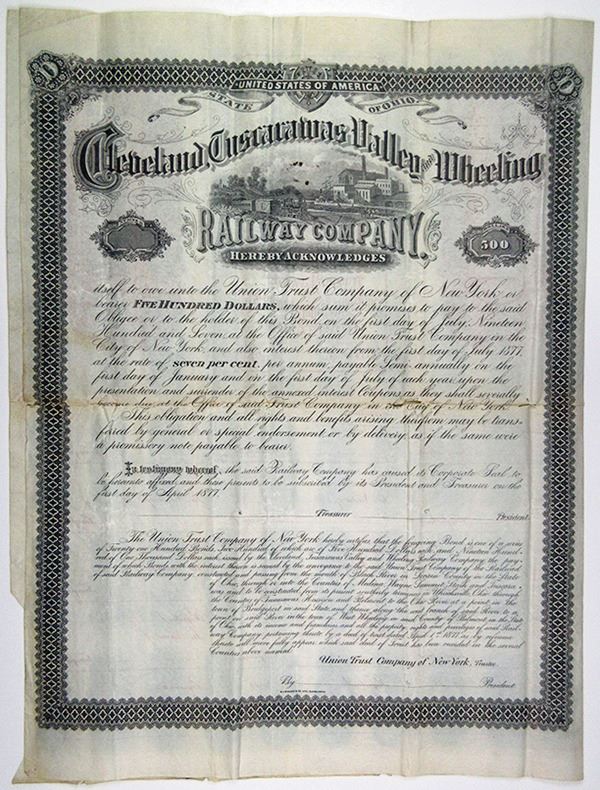 UNITED STATES OF AMERICA
STATE OF OHIO.
Cleveland, Tuscarawas Valley and Wheeling
RAILWAY COMPANY.
500
HEREBY ACKNOWLEDGES
itself to owe unto the Union Trust Company of New York or
bearer FIVE HUNDRED DOLLARS, which sum it promises to pay to the said
Obligee or to the holder of this Bond on the first day of July, Nineteen
Hundred and Seven at the Office of said Union Trust Company in the
City of New York, and also interest thereon from the first day of July 1877,
at the rate of seven per cent. per annum, payable Semi-annually on the
first day of January and on the first day of July of each year, upon the
presentation and surrender of the annexed interest Coupons as they shall severally
become due at the Office of said Trust Company in the City of New York.
This obligation and all rights and benefits arising therefrom may be trans-
ferred by general or special endorsement or by delivery as if the same were
a promissory note payable to bearer.
In testimony whereof, the said Railway Company has caused its Corporate Seal to
be hereunto affixed and these presents to be subscribed by its President and Treasurer on the
first day of April 1877.
Treasurer President
The Union Trust Company of New York hereby certifies that the foregoing Bond is one of a series
of Twenty one Hundred Bonds, Two Hundred of which are of Five Hundred Dollars each and Nineteen Hund-
red of One Thousand Dollars each issued by the Cleveland, Tuscarawas Valley and Wheeling Railway Company, the pay-
ment of which Bonds with the interest thereon is secured by the conveyance to the said Union Trust Company of the Railroad
of said Railway Company, constructed and passing from the mouth of Black River in Lorain County in the State
of Ohio, through to into the Counties of Medina, Wayne, Summit, Stark and Tuscara-
was and to be constructed from its present southerly terminus at Uhrichsville, Ohio through
the Counties of Tuscarawas, Harrison and Belmont to the Ohio River at a point in the
town of Bridgeport in said State and thence along the said branch of said River to a
point on said River in the town of West Wheeling in said County of Belmont in the State
of Ohio, with its income and franchises and all the property rights and privileges of said Rail-
way Company pertaining thereto by a deed of trust dated April 1st 1877 as by reference
thereto will more fully appear, which said deed of Trust has been recorded in the several
Counties above named.
Union Trust Company of New York, Trustee.
By President